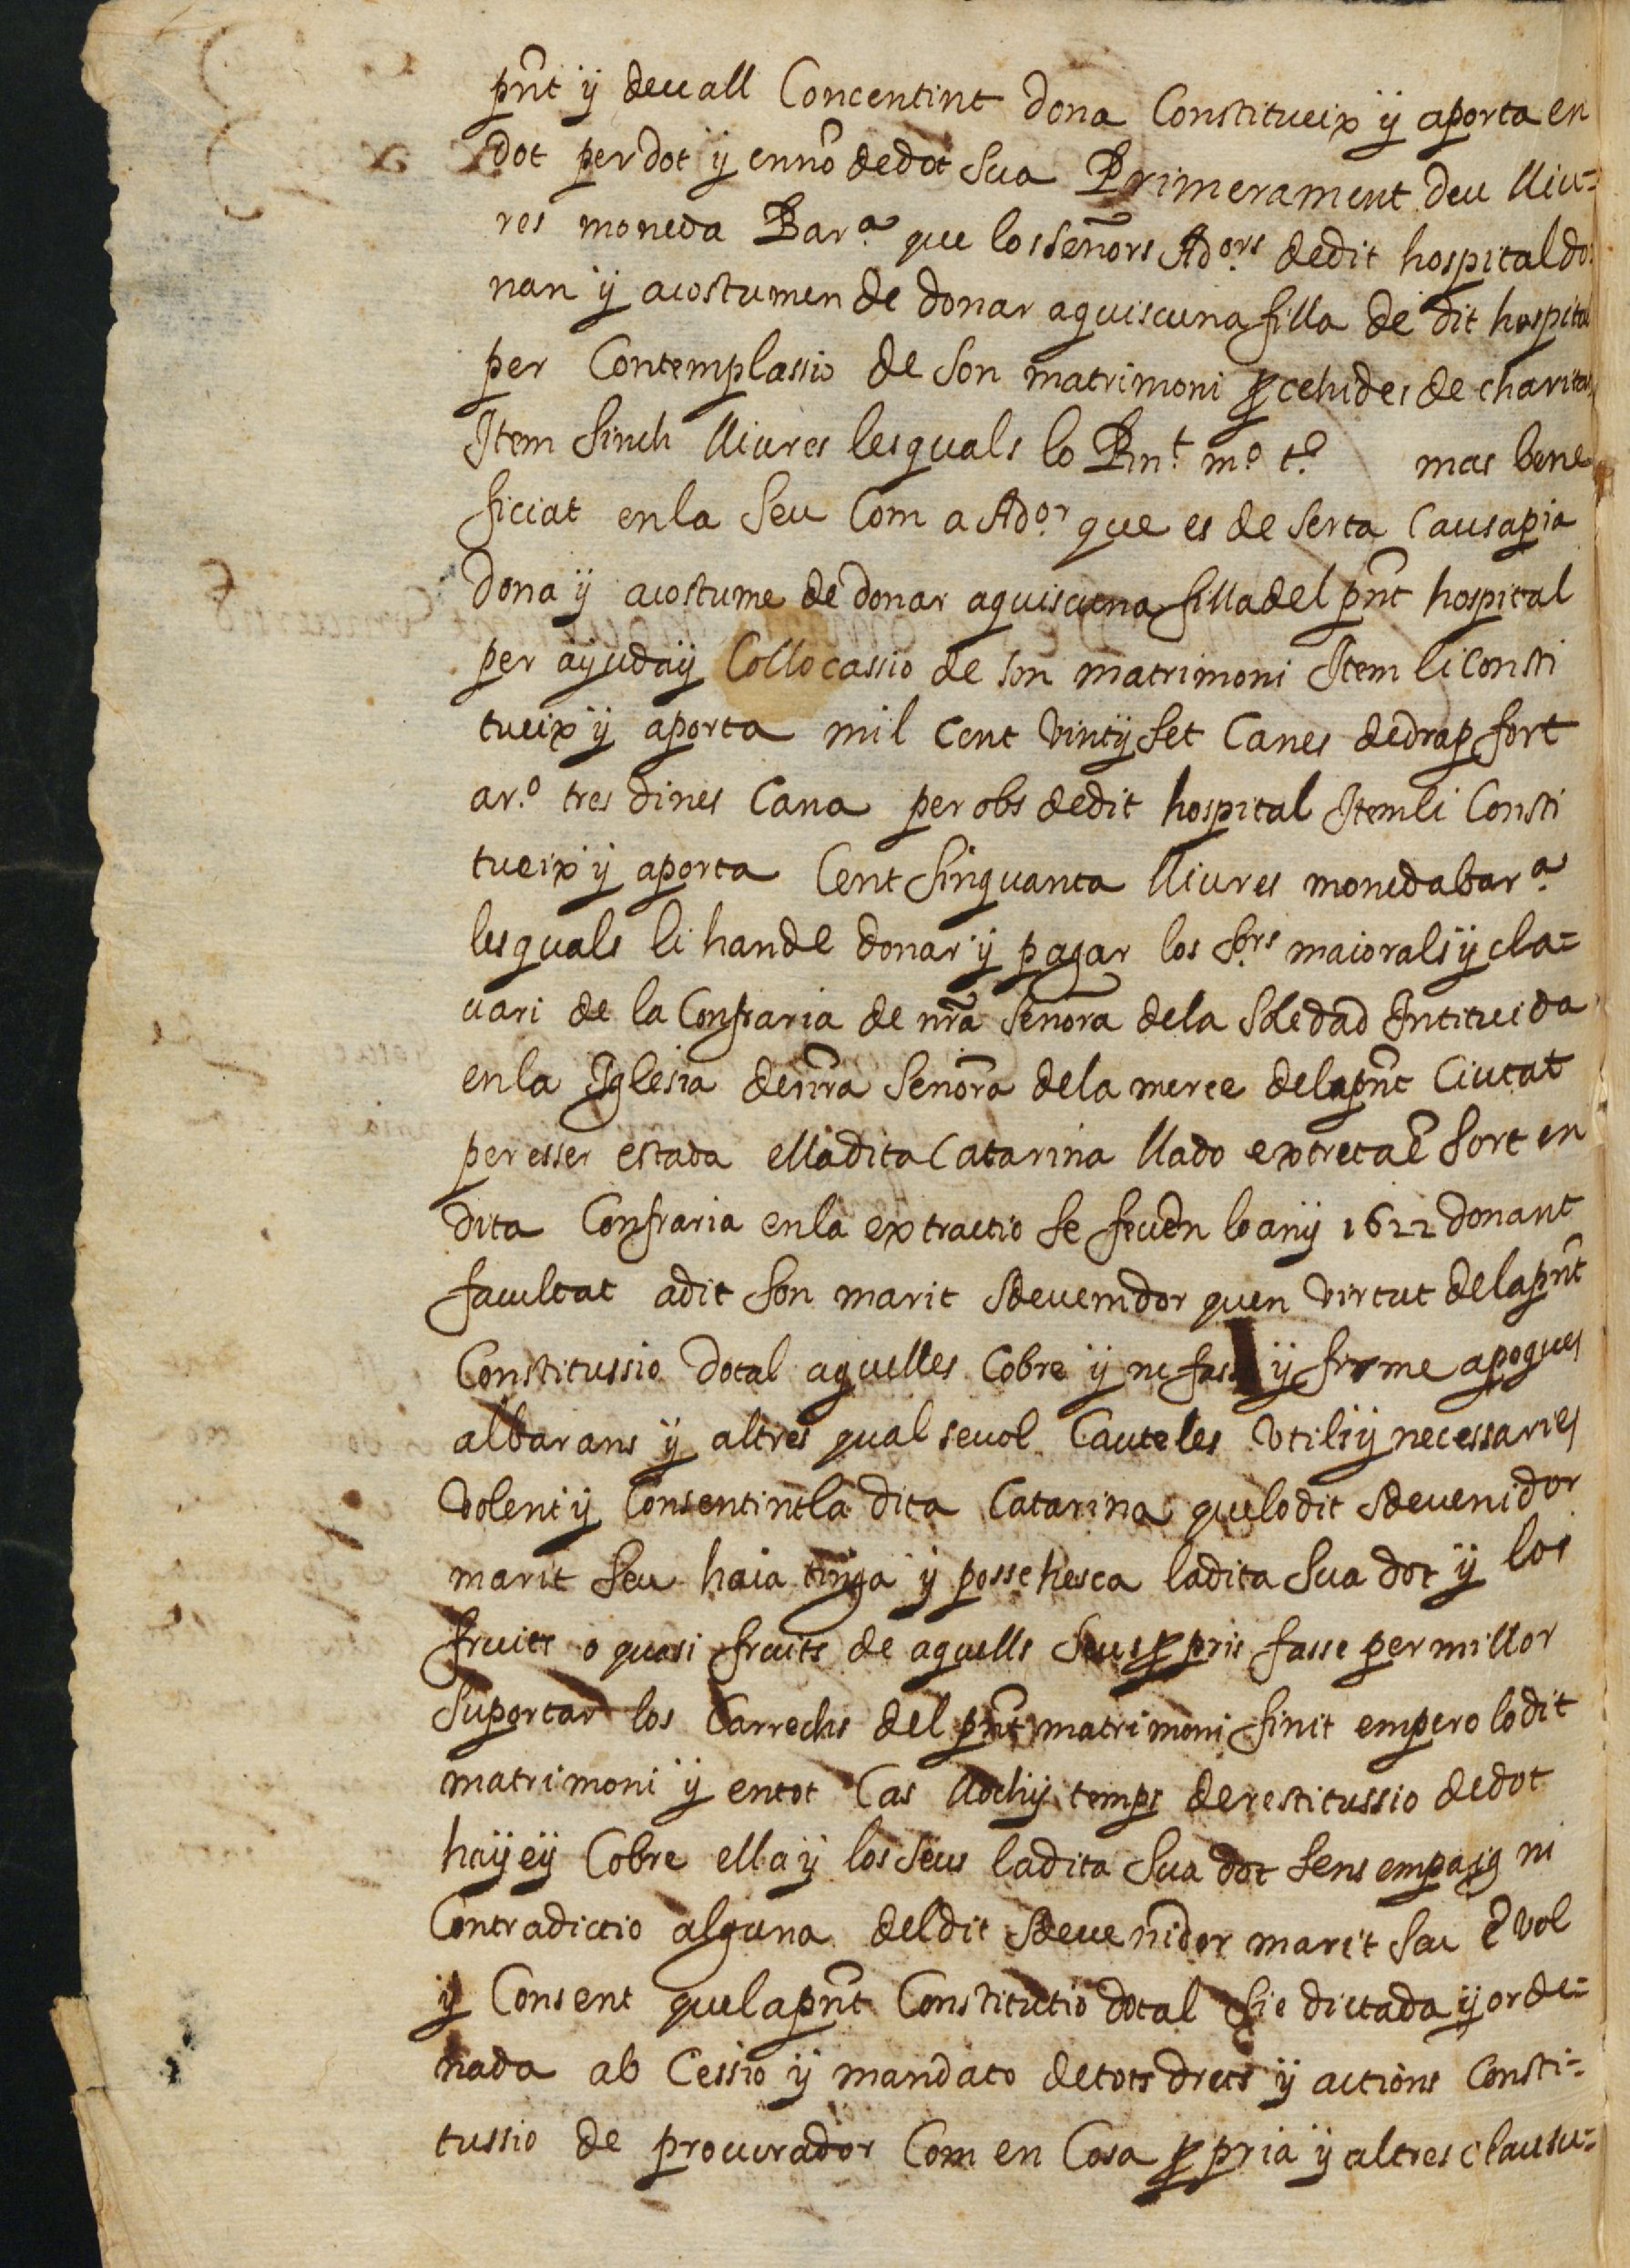 pñt ÿ deuall Concentint dona Constitueix ÿ aporta en
dot per dot ÿ en nõ de dot sua Primerament deu lliu=
res moneda Bar.ª que los señors Ad.ors de dit hospital do
nan ÿ acostumen de donar a quiscuna filla de dit hospital
per Contemplassio de son matrimoni ꝓcehides de charitas
Item sinch lliures les quals lo Rnt. mº tº mas bene
ficiat en la Seu Com a Ad.or que es de serta Causa pia
dona ÿ acostume de donar a quiscuna filla del pñt hospital
per aÿuda ÿ Collocassio de son matrimoni Item li Consti
tueix ÿ aporta mil Cent vint ÿ set Canes de drap fort
a r.º tres dines Cana per obs de dit hospital Item li Consti
tueix ÿ aporta Cent sinquanta lliures moneda bar.ª
les quals li han de donar ÿ pagar los S.ors maiorals ÿ cla=
uari de la Confraria de nrã Señora de la Soledad Intituida
en la Iglesia de nrã Señora de la merce de la pñt Ciutat
per esser estada ella dita Catarina llado extreta ẽ sort en
dita Confraria en la extractio se feu en lo anÿ 1622 donant
facultat a dit son marit sdeuenidor quen virtut de la pñt
Constitussio dotal aquelles Cobre ÿ ne fass ÿ firme apoques
albarans ÿ altres qualseuol Cauteles vtils ÿ necessaries
volent ÿ Consentint la dita Catarina que lo dit sdeuenidor
marit seu haia tinga ÿ possehesca la dita sua dot ÿ los
fruits o quasi fruits de aquells seus ꝓpris fasse per millor
suportar los Carrechs del pñt matrimoni finit empero lo dit
matrimoni ÿ en tot Cas lloch ÿ temps de restitussio de dot
haÿe ÿ Cobre ella ÿ los seus la dita sua dot sens empaig ni
Contradictio alguna del dit sdeuenidor marit seu E vol
ÿ Consent que la pñt Constitutio dotal sie dictada ÿ orde=
nada ab Cessio ÿ mandato de tots drets ÿ actions Consti=
tussio de procurador Com en Cosa ꝓpria ÿ altres clausu=